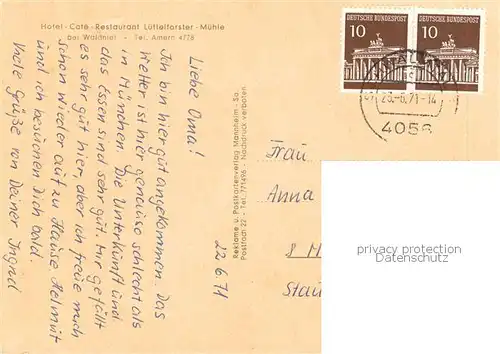 Hotel-Café-Restaurant Lüttelforster-Mühle
bei Waldniel - Tel. Amern 4778
22.6.71
Liebe Oma!
Ich bin hier gut angekommen. Das
Wetter ist hier genauso schlecht als
in München. Die Unterkunft und
das Essen sind sehr gut. Mir gefällt
es sehr gut hier, aber ich freue mich
schon wieder auf zu Hause. Helmut
und ich besuchen Dich bald.
Viele Grüße von Deiner Ingrid
Reklame u. Postkartenverlag Mannheim - Sa.
Postfach 22 - Tel. 771496 - Nachdruck verboten
10 DEUTSCHE BUNDESPOST
10 DEUTSCHE BUNDESPOST
23.-6.71-14
4056
Frau
Anna
8 M
privacy protection
Datenschutz